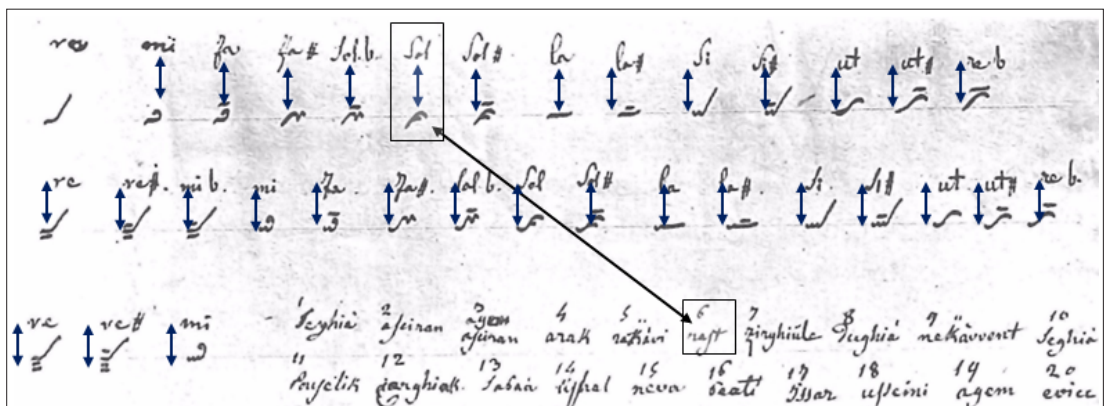 re mi fa fa# Sol.b. Sol Sol# la la# Si Si# ut ut# re b
re re#. mi b. mi fa. fa#. Sol.b. Sol Sol# la la#. Si. Si# ut. ut# re b.
re re# mi 1 2 asciran 3 agem asciran 4 arak 5 6 rast 7 zirghiule 8 Dughiá 9 nekàvvent 10 Seghiá
11 Pusselik 12 zarghiak. 13 Sabáà 14 15 neva 16 beatí 17 Issar 18 usseini 19 agem 20 evicc